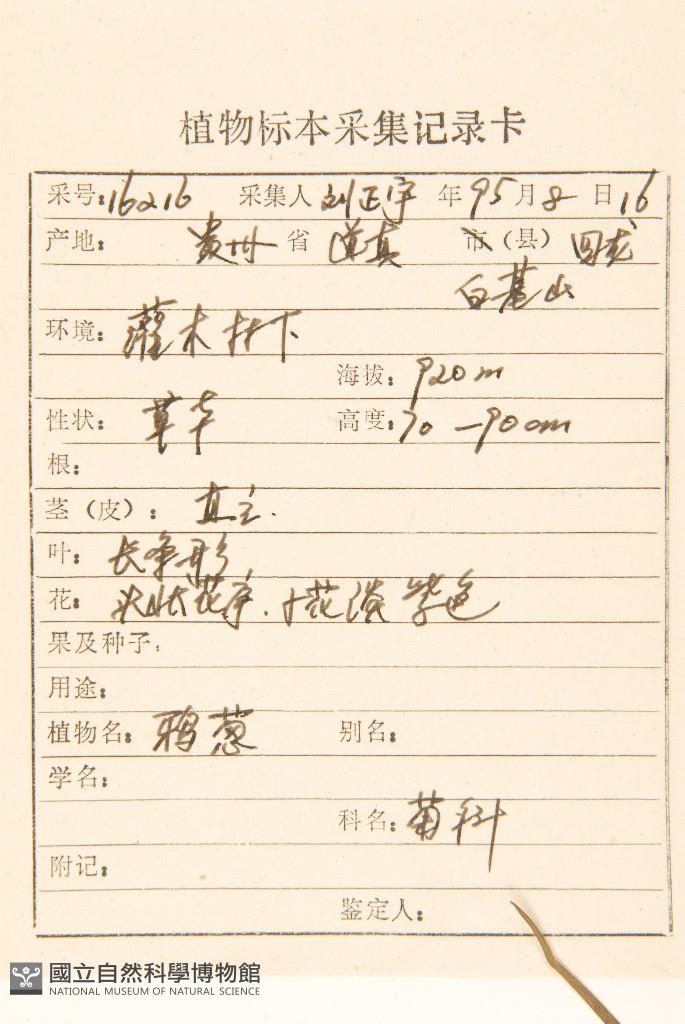 植物标本采集记录卡
采号:16216 采集人 刘正宇 年 95 月 8 日 16
产地: 贵州 省 道真 市 (县) 回龙
白蓦山
环境: 灌木林下
海拔: 920m
性状: 草本 高度: 70-90cm
根:
茎(皮): 直立.
叶: 长条形
花: 头状花序. 花淡紫色
果及种子:
用途:
植物名: 鸦葱 别名:
学名:
科名: 菊科
附记:
鉴定人:
國立自然科學博物館
NATIONAL MUSEUM OF NATURAL SCIENCE